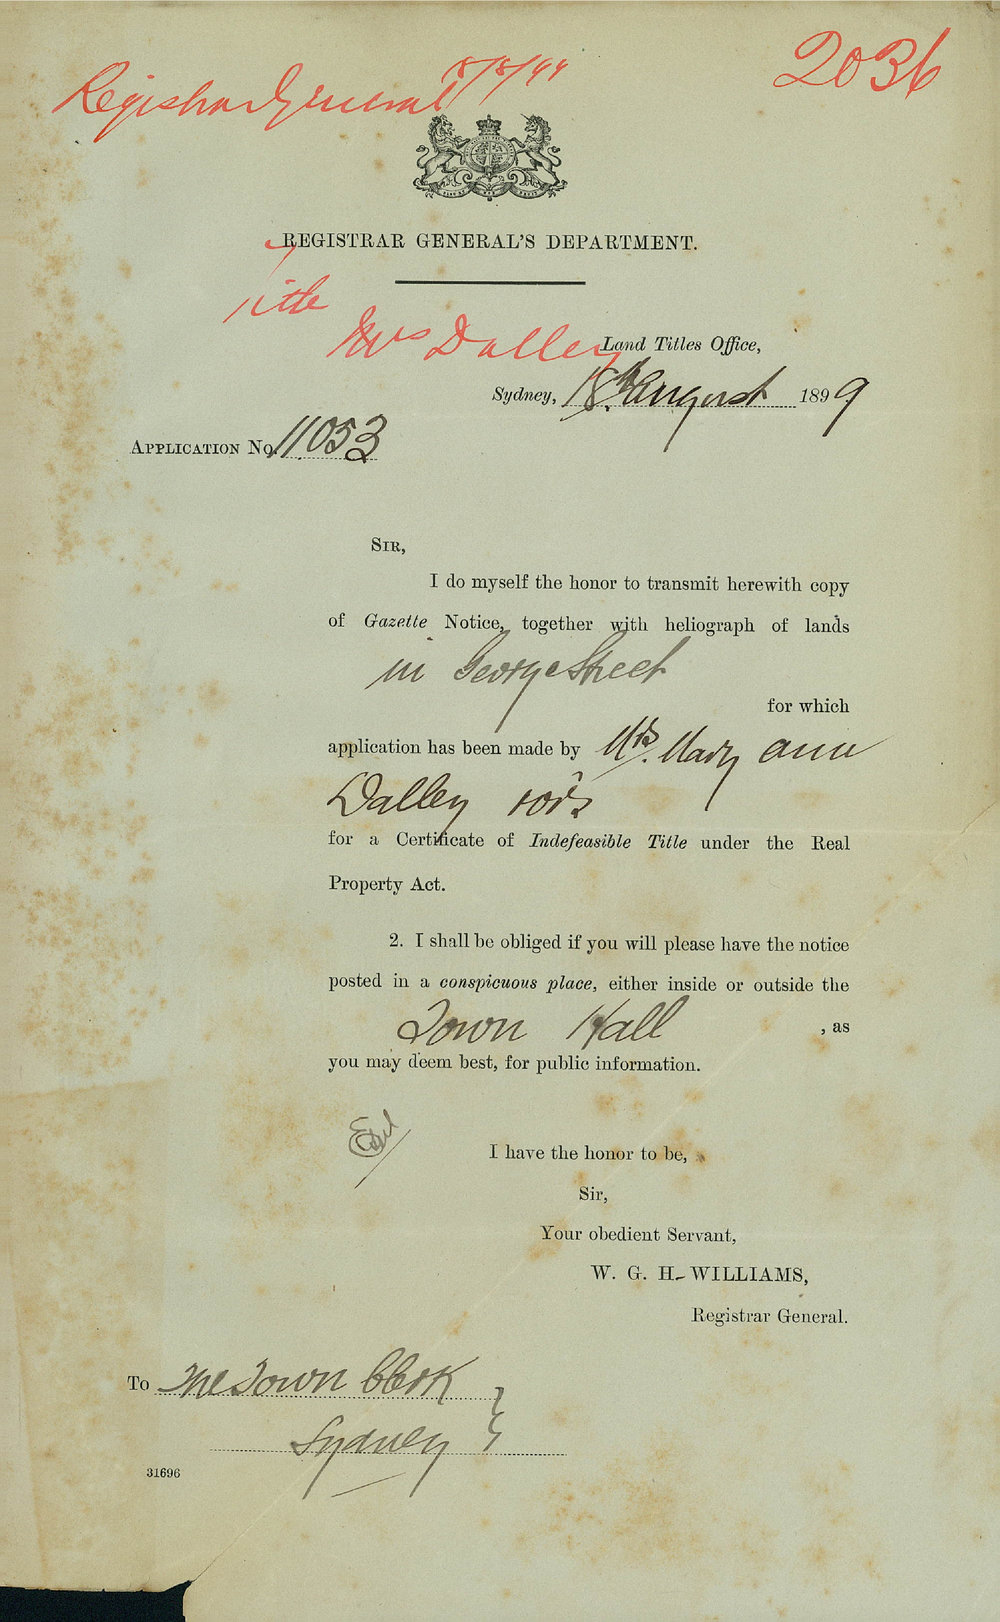 Registrar General 18/8/99
2036
REGISTRAR GENERAL'S DEPARTMENT.
Title
Mrs Dalley
Land Titles Office,
Sydney, 18th August 1899
APPLICATION No. 11053
SIR,
I do myself the honor to transmit herewith copy
of Gazette Notice, together with heliograph of lands
in George Street
for which
application has been made by Mrs. Mary Ann
Dalley
for a Certificate of Indefeasible Title under the Real
Property Act.
2. I shall be obliged if you will please have the notice
posted in a conspicuous place, either inside or outside the
Town Hall , as
you may deem best, for public information.
I have the honor to be,
Sir,
Your obedient Servant,
W. G. H. WILLIAMS,
Registrar General.
To The Town Clerk
Sydney
31696